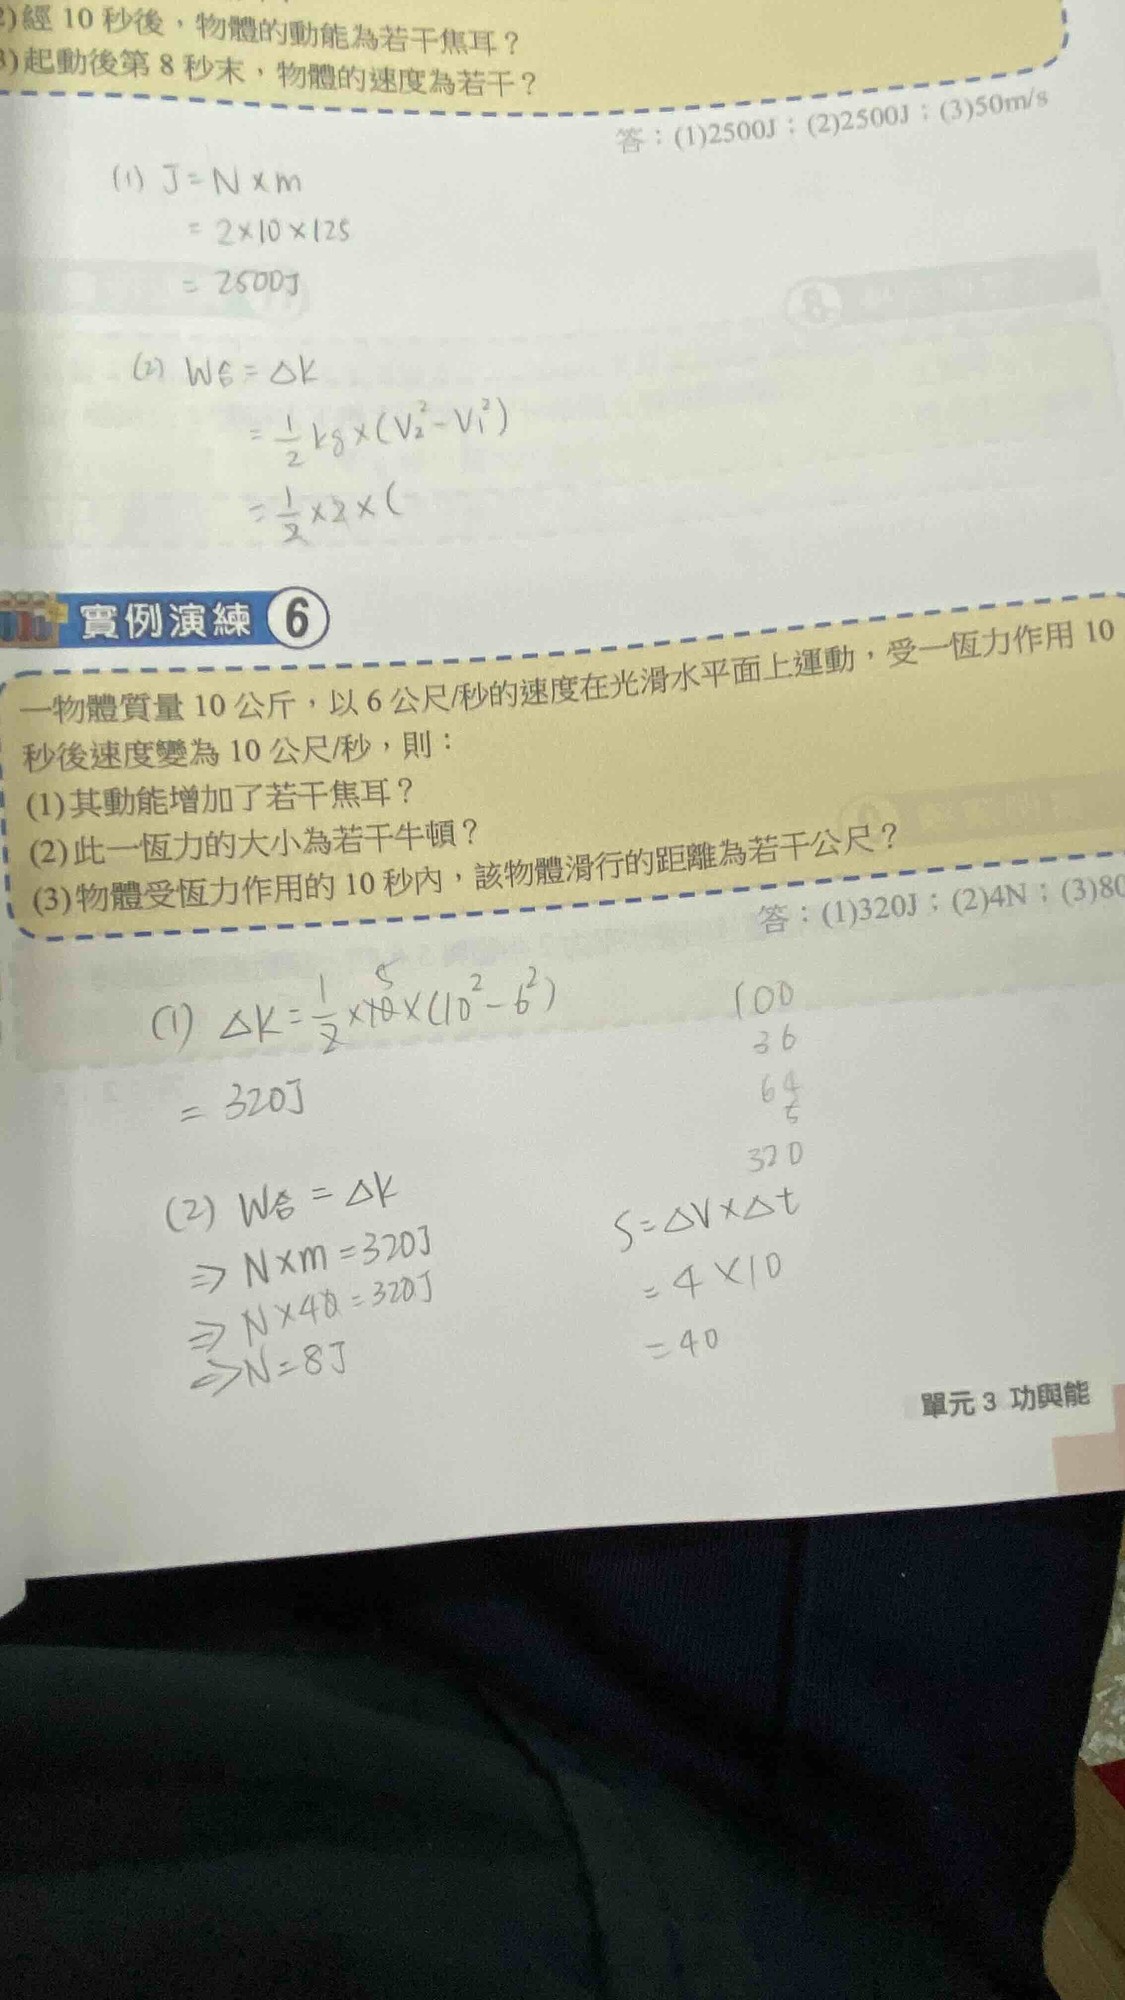 2)經 10 秒後，物體的動能為若干焦耳？
3)起動後第 8 秒末，物體的速度為若干？
答：(1)2500J；(2)2500J；(3)50m/s
(1) J=N×m
=2×10×125
=2500J
(2) W合=△K
=1/2 kg×(V₂²-V₁²)
=1/2×2×(
實例演練 6
一物體質量 10 公斤，以 6 公尺/秒的速度在光滑水平面上運動，受一恆力作用 10
秒後速度變為 10 公尺/秒，則：
(1)其動能增加了若干焦耳？
(2)此一恆力的大小為若干牛頓？
(3)物體受恆力作用的 10 秒內，該物體滑行的距離為若干公尺？
答：(1)320J；(2)4N；(3)80
(1) △K=1/2×10×(10²-6²)
5
=320J
100
36
64
5
320
(2) W合=△K
⇒N×m=320J
⇒N×40=320J
⇒N=8J
S=△V×△t
=4×10
=40
單元 3 功與能